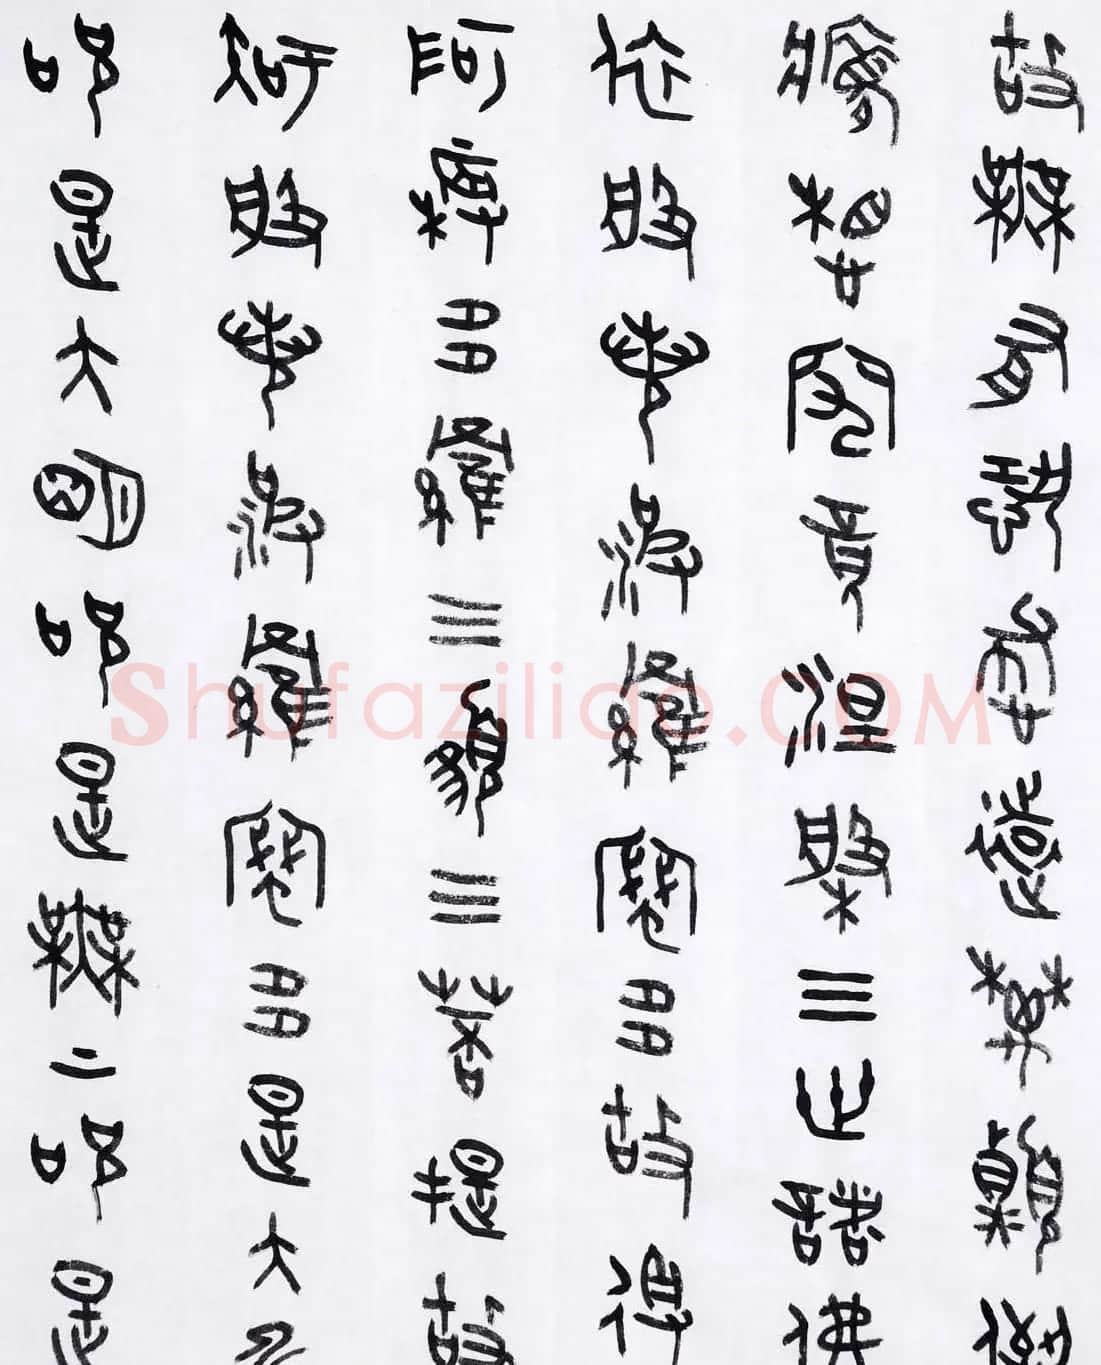 故無有恐怖遠離顛倒
夢想究竟涅槃三世諸佛
依般若波羅蜜多故得
阿耨多羅三藐三菩提故
知般若波羅蜜多是大
咒是大明咒是無上咒是
Shufaziliao.COM